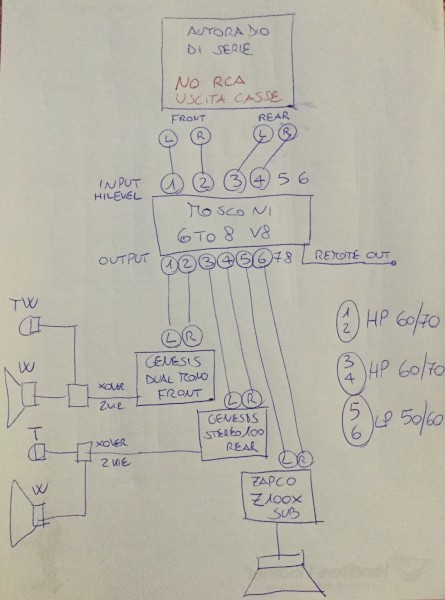 AUTORADIO
DI SERIE
NO RCA
USCITA CASSE
FRONT REAR
L R L R
INPUT
HILEVEL
1 2 3 4 5 6
MOSCONI
6 TO 8 V8
OUTPUT 1 2 3 4 5 6 7 8 REMOTE OUT
TW
L R
GENESIS
DUAL MONO
FRONT
W
XOVER
2 VIE
1
2
HP 60/70
3
4
HP 60/70
5
6
LP 50/60
L R
GENESIS
STEREO 100
REAR
T
XOVER
2 VIE
W
L R
ZAPCO
Z100X
SUB